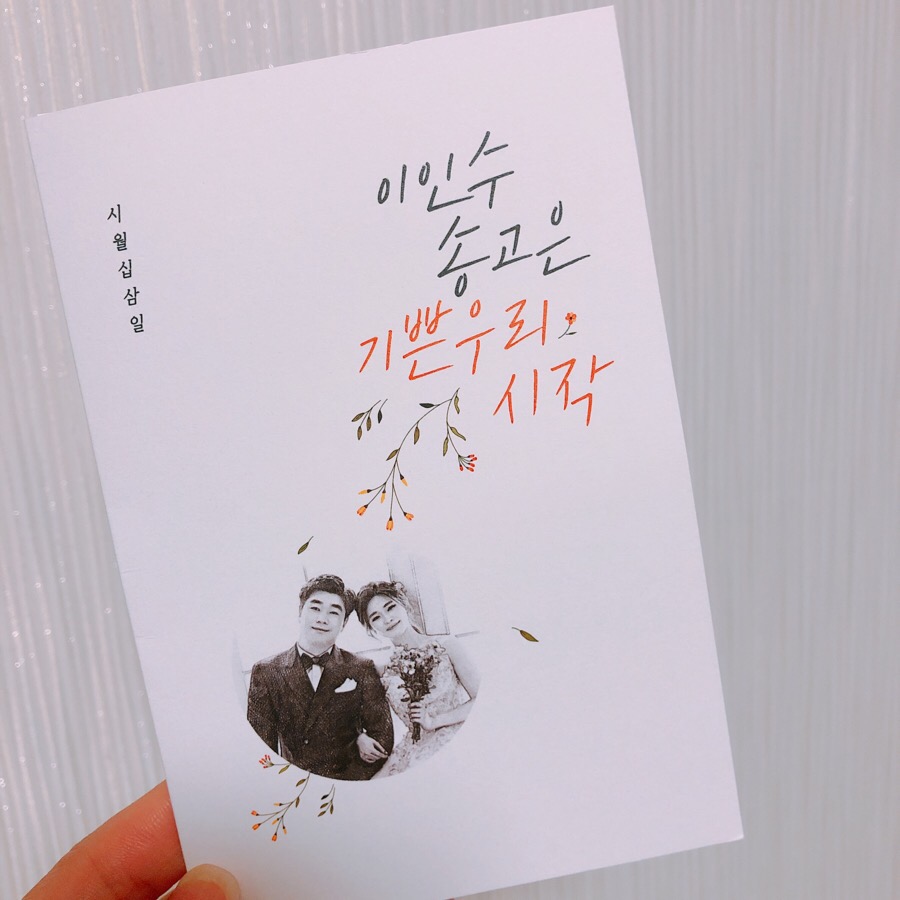 시월십삼일
이인수
송고은
기쁜우리
시작